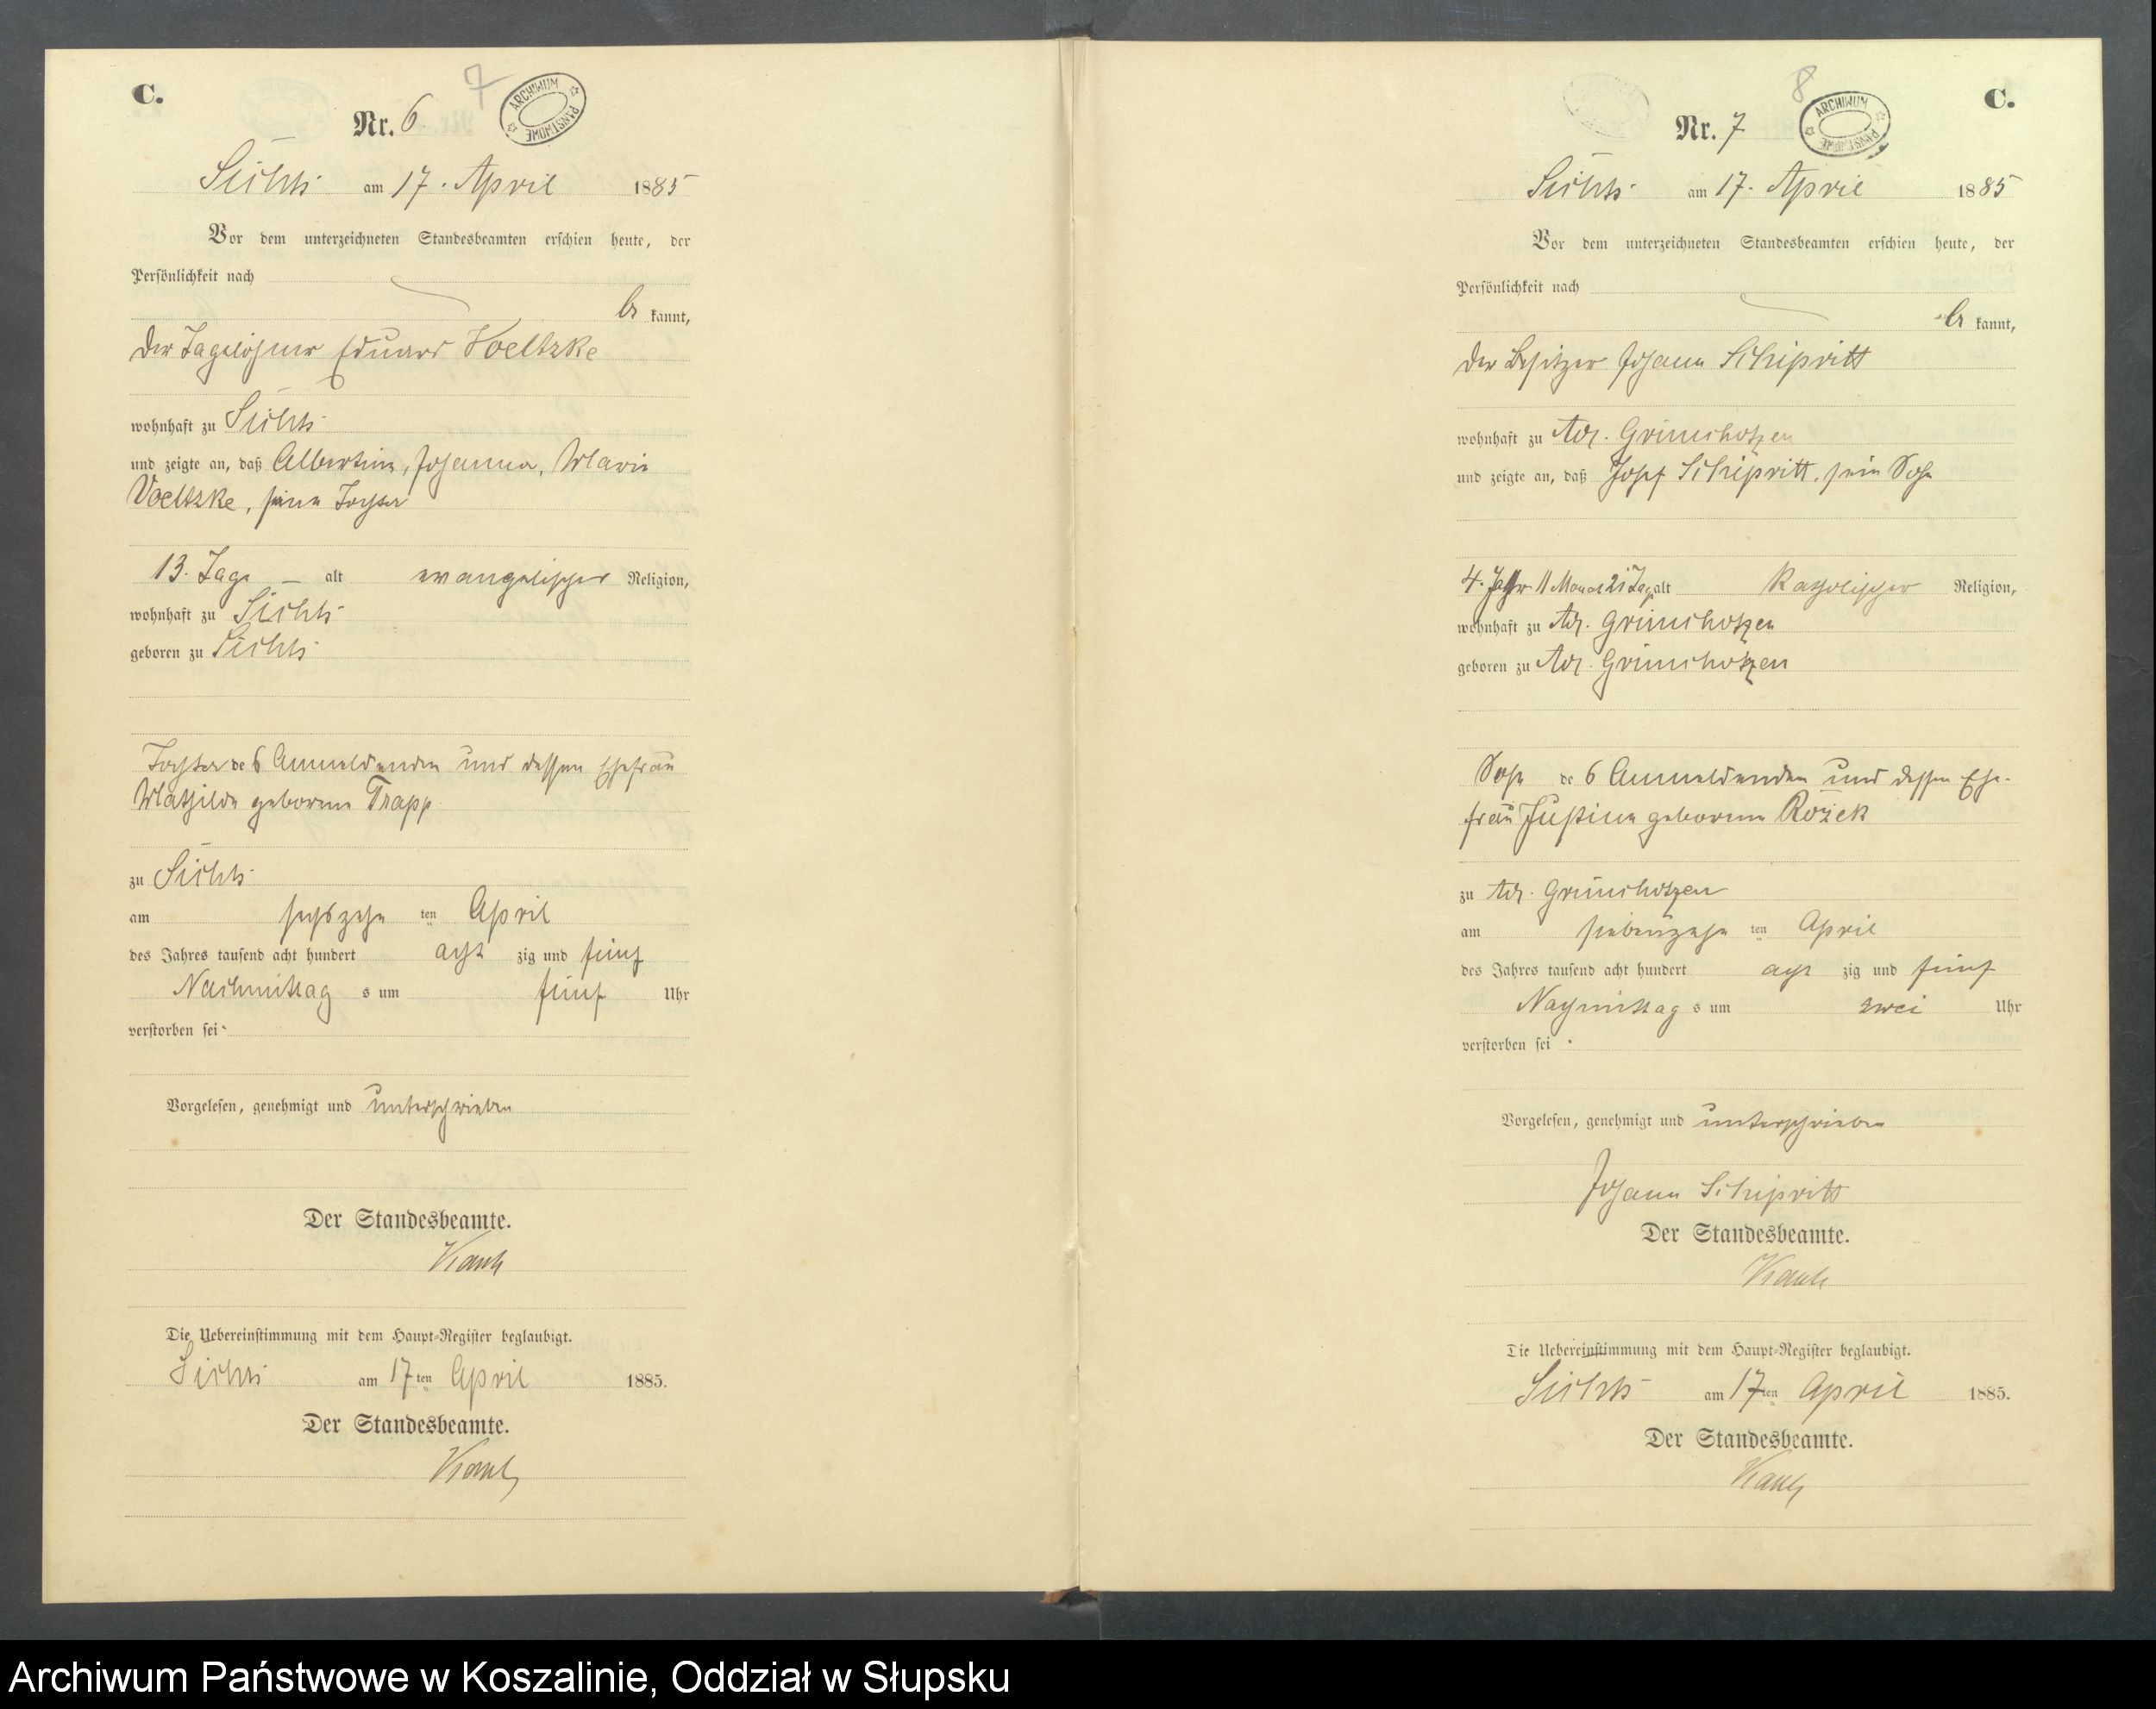 C.
Nr. 6
7
ARCHIWUM PAŃSTWOWE
am 17. April 1885
Vor dem unterzeichneten Standesbeamten erschien heute, der
Persönlichkeit nach
be kannt,
der Tagelöhner Eduard Voeltzke
wohnhaft zu
und zeigte an, daß Albertine, Johanna, Marie
Voeltzke, seine Tochter
13. Tage – alt evangelischer Religion,
wohnhaft zu
geboren zu
Tochter des Anmeldenden und dessen Ehefrau
Mathilde geborene Trapp
zu
am sechszehn ten April
des Jahres tausend acht hundert acht zig und fünf
Nachmittag s um fünf Uhr
verstorben sei.
Vorgelesen, genehmigt und unterschrieben
Der Standesbeamte.
Die Uebereinstimmung mit dem Haupt-Register beglaubigt.
am 17ten April 1885.
Der Standesbeamte.
C.
Nr. 7
8
ARCHIWUM PAŃSTWOWE
am 17. April 1885
Vor dem unterzeichneten Standesbeamten erschien heute, der
Persönlichkeit nach
be kannt,
der Besitzer Johann Schipritt
wohnhaft zu
und zeigte an, daß Josef Schipritt, sein Sohn
4. Jahr 11 Monat 21 Tag alt Katholischer Religion,
wohnhaft zu
geboren zu
Sohn des Anmeldenden und dessen Ehe-
frau Justine geborene Rożek
zu
am siebenzehn ten April
des Jahres tausend acht hundert acht zig und fünf
Nachmittag s um zwei Uhr
verstorben sei.
Vorgelesen, genehmigt und unterschrieben
Johann Schipritt
Der Standesbeamte.
Die Uebereinstimmung mit dem Haupt-Register beglaubigt.
am 17ten April 1885.
Der Standesbeamte.
Archiwum Państwowe w Koszalinie, Oddział w Słupsku